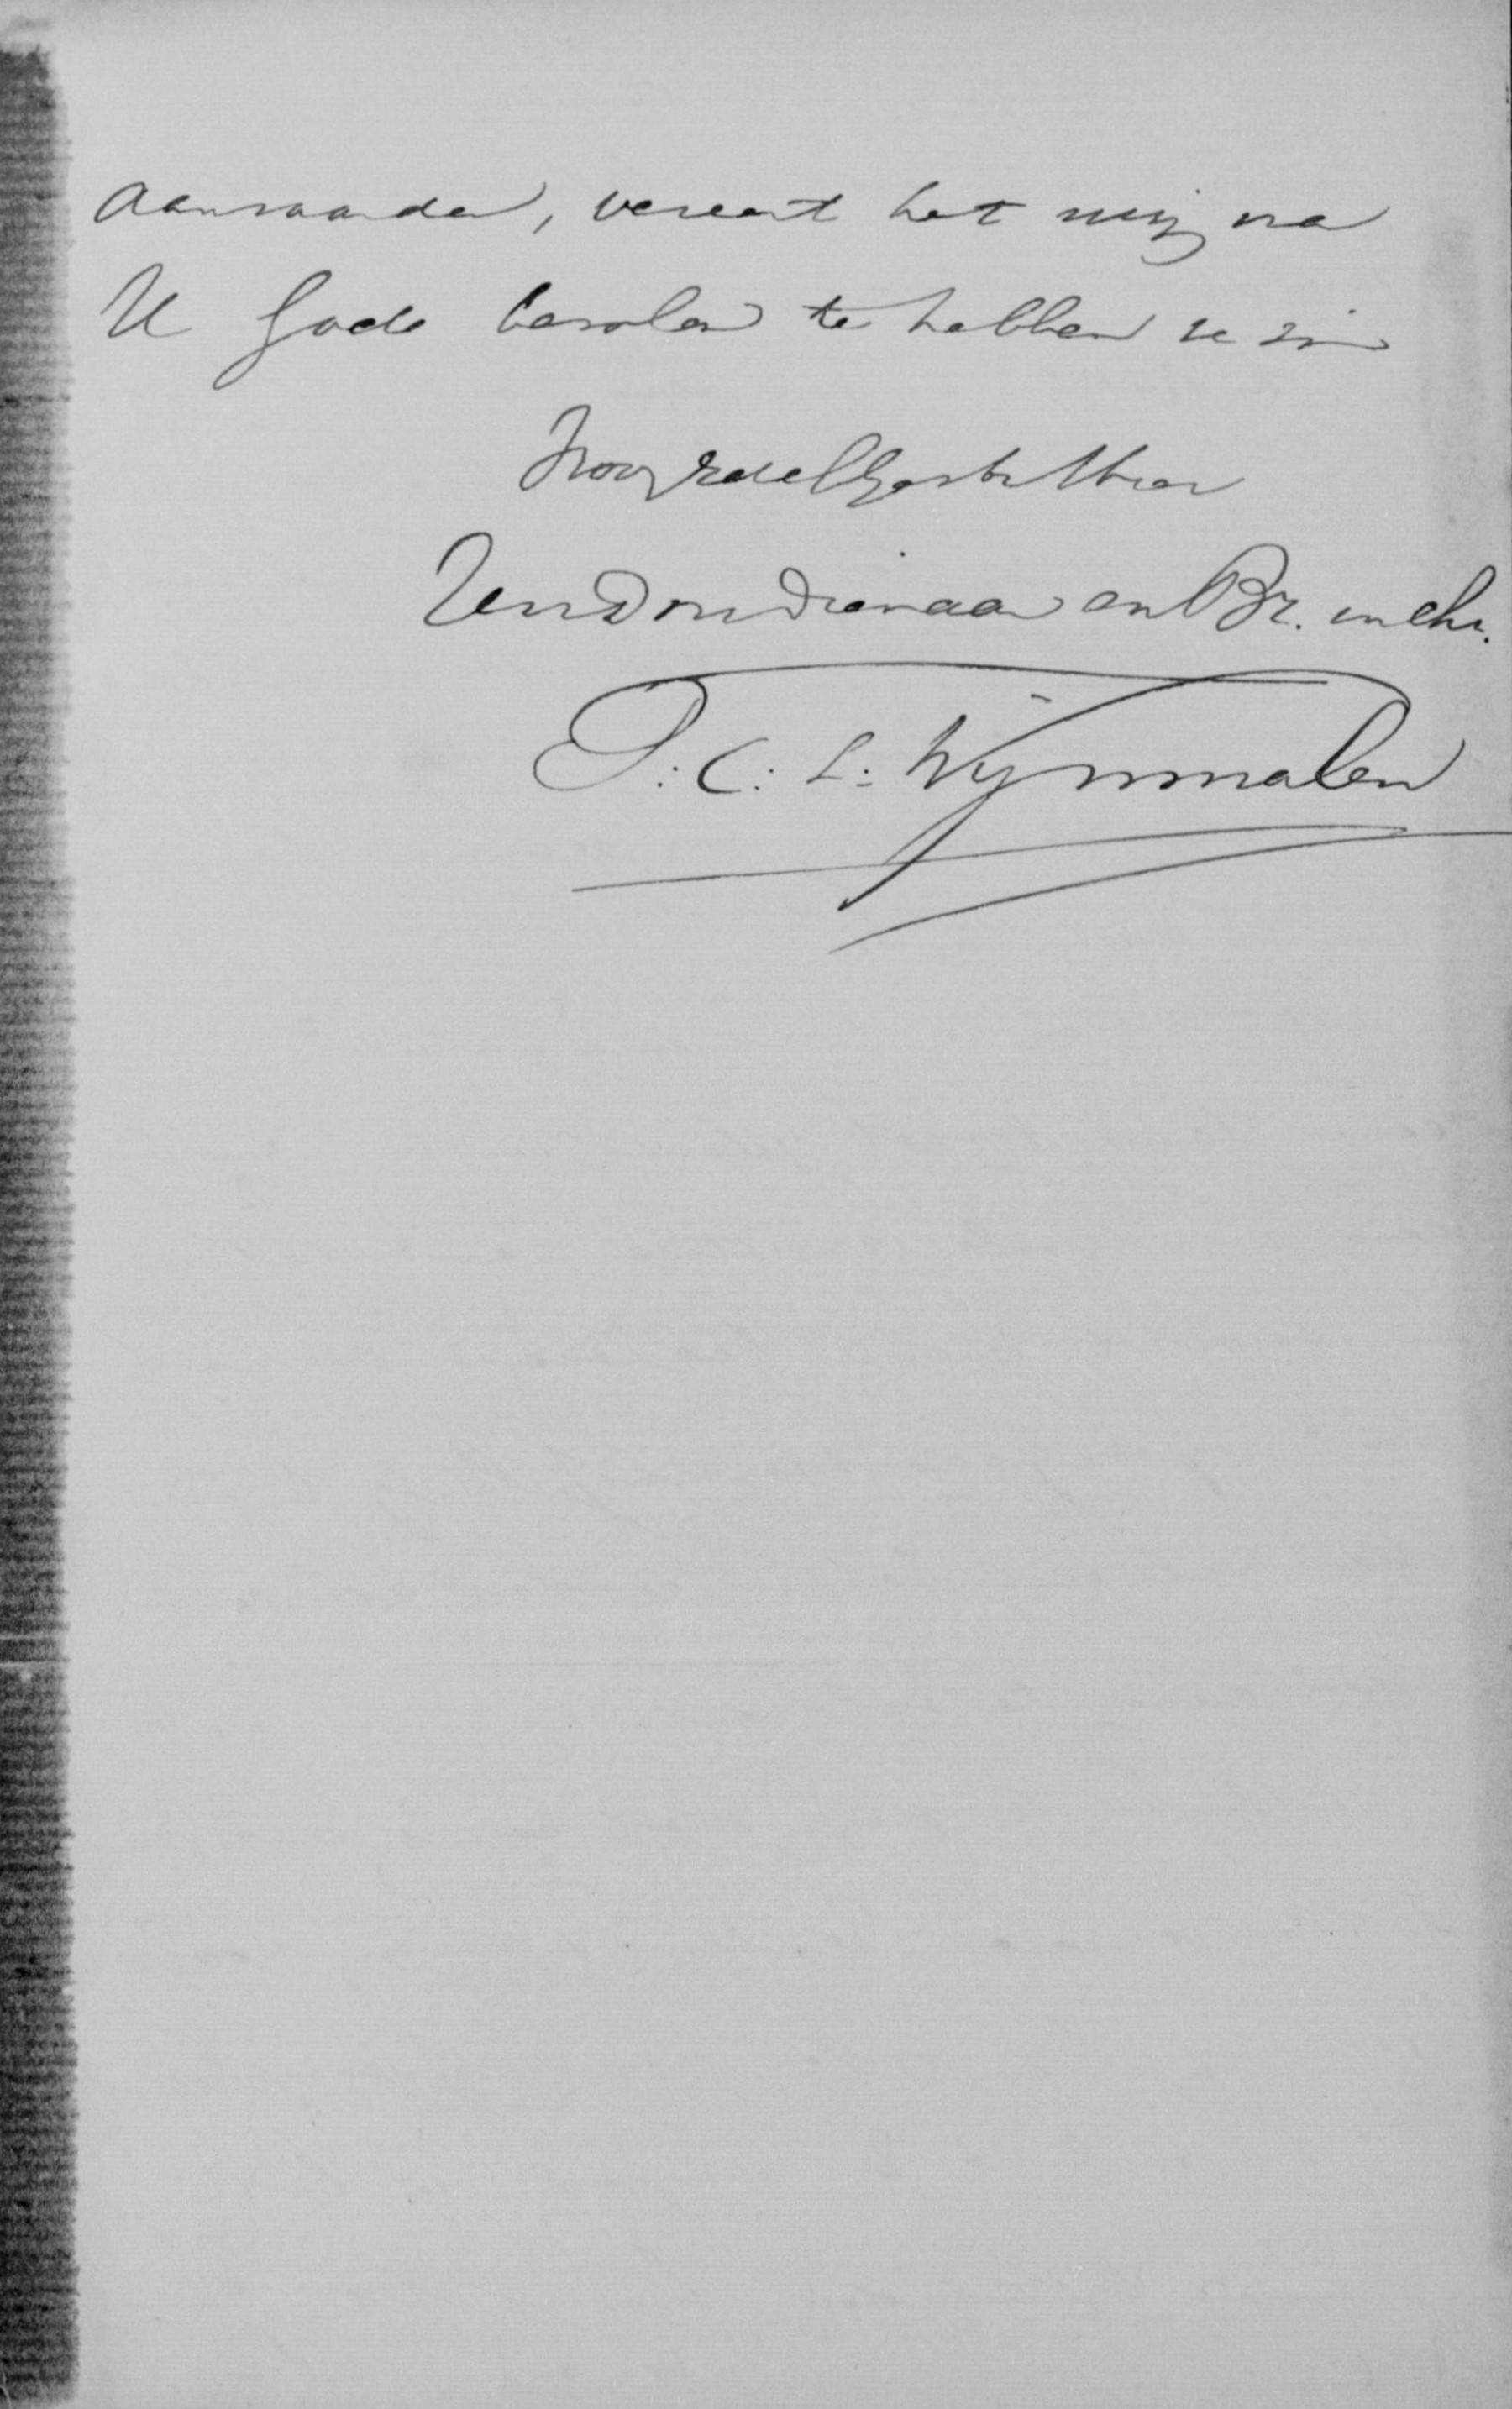 aanvaarden, vereert het mij na
U Gode bevolen te hebben te zijn
HoogEdelGestr Heer
Uw dienaar en Br. in Chr.
P. C. L. Wijnmalen